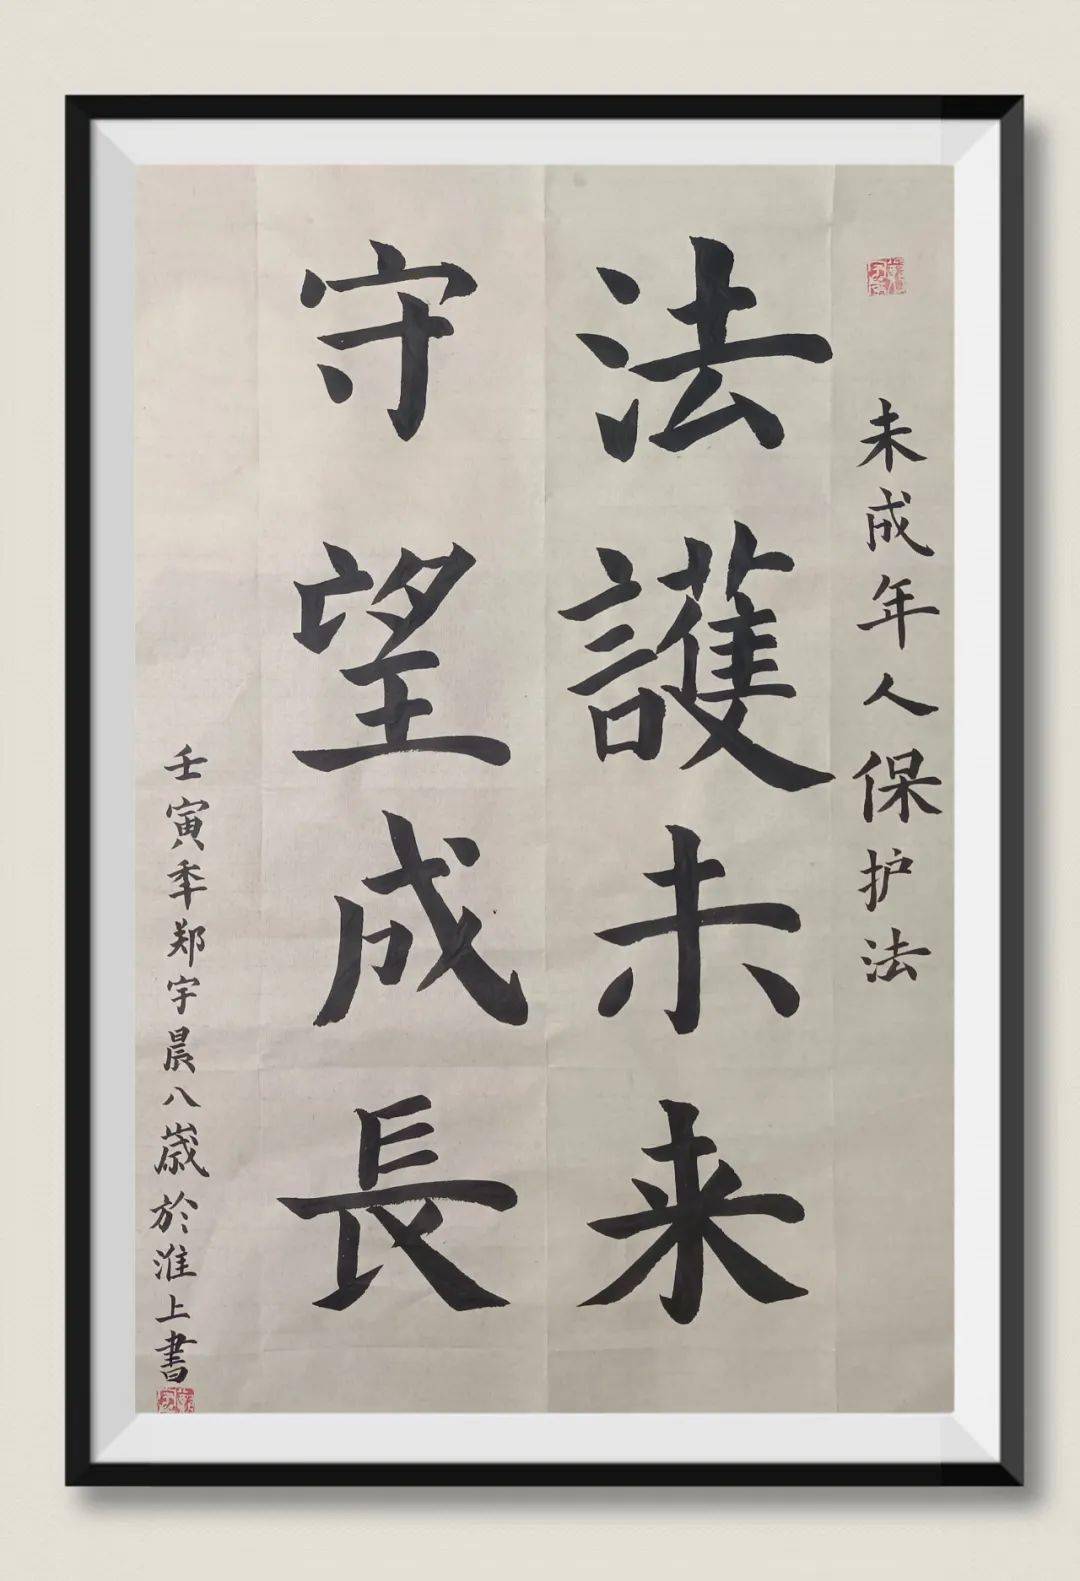 未成年人保护法
法護未来
守望成長
壬寅年郑宇晨八歳於淮上書